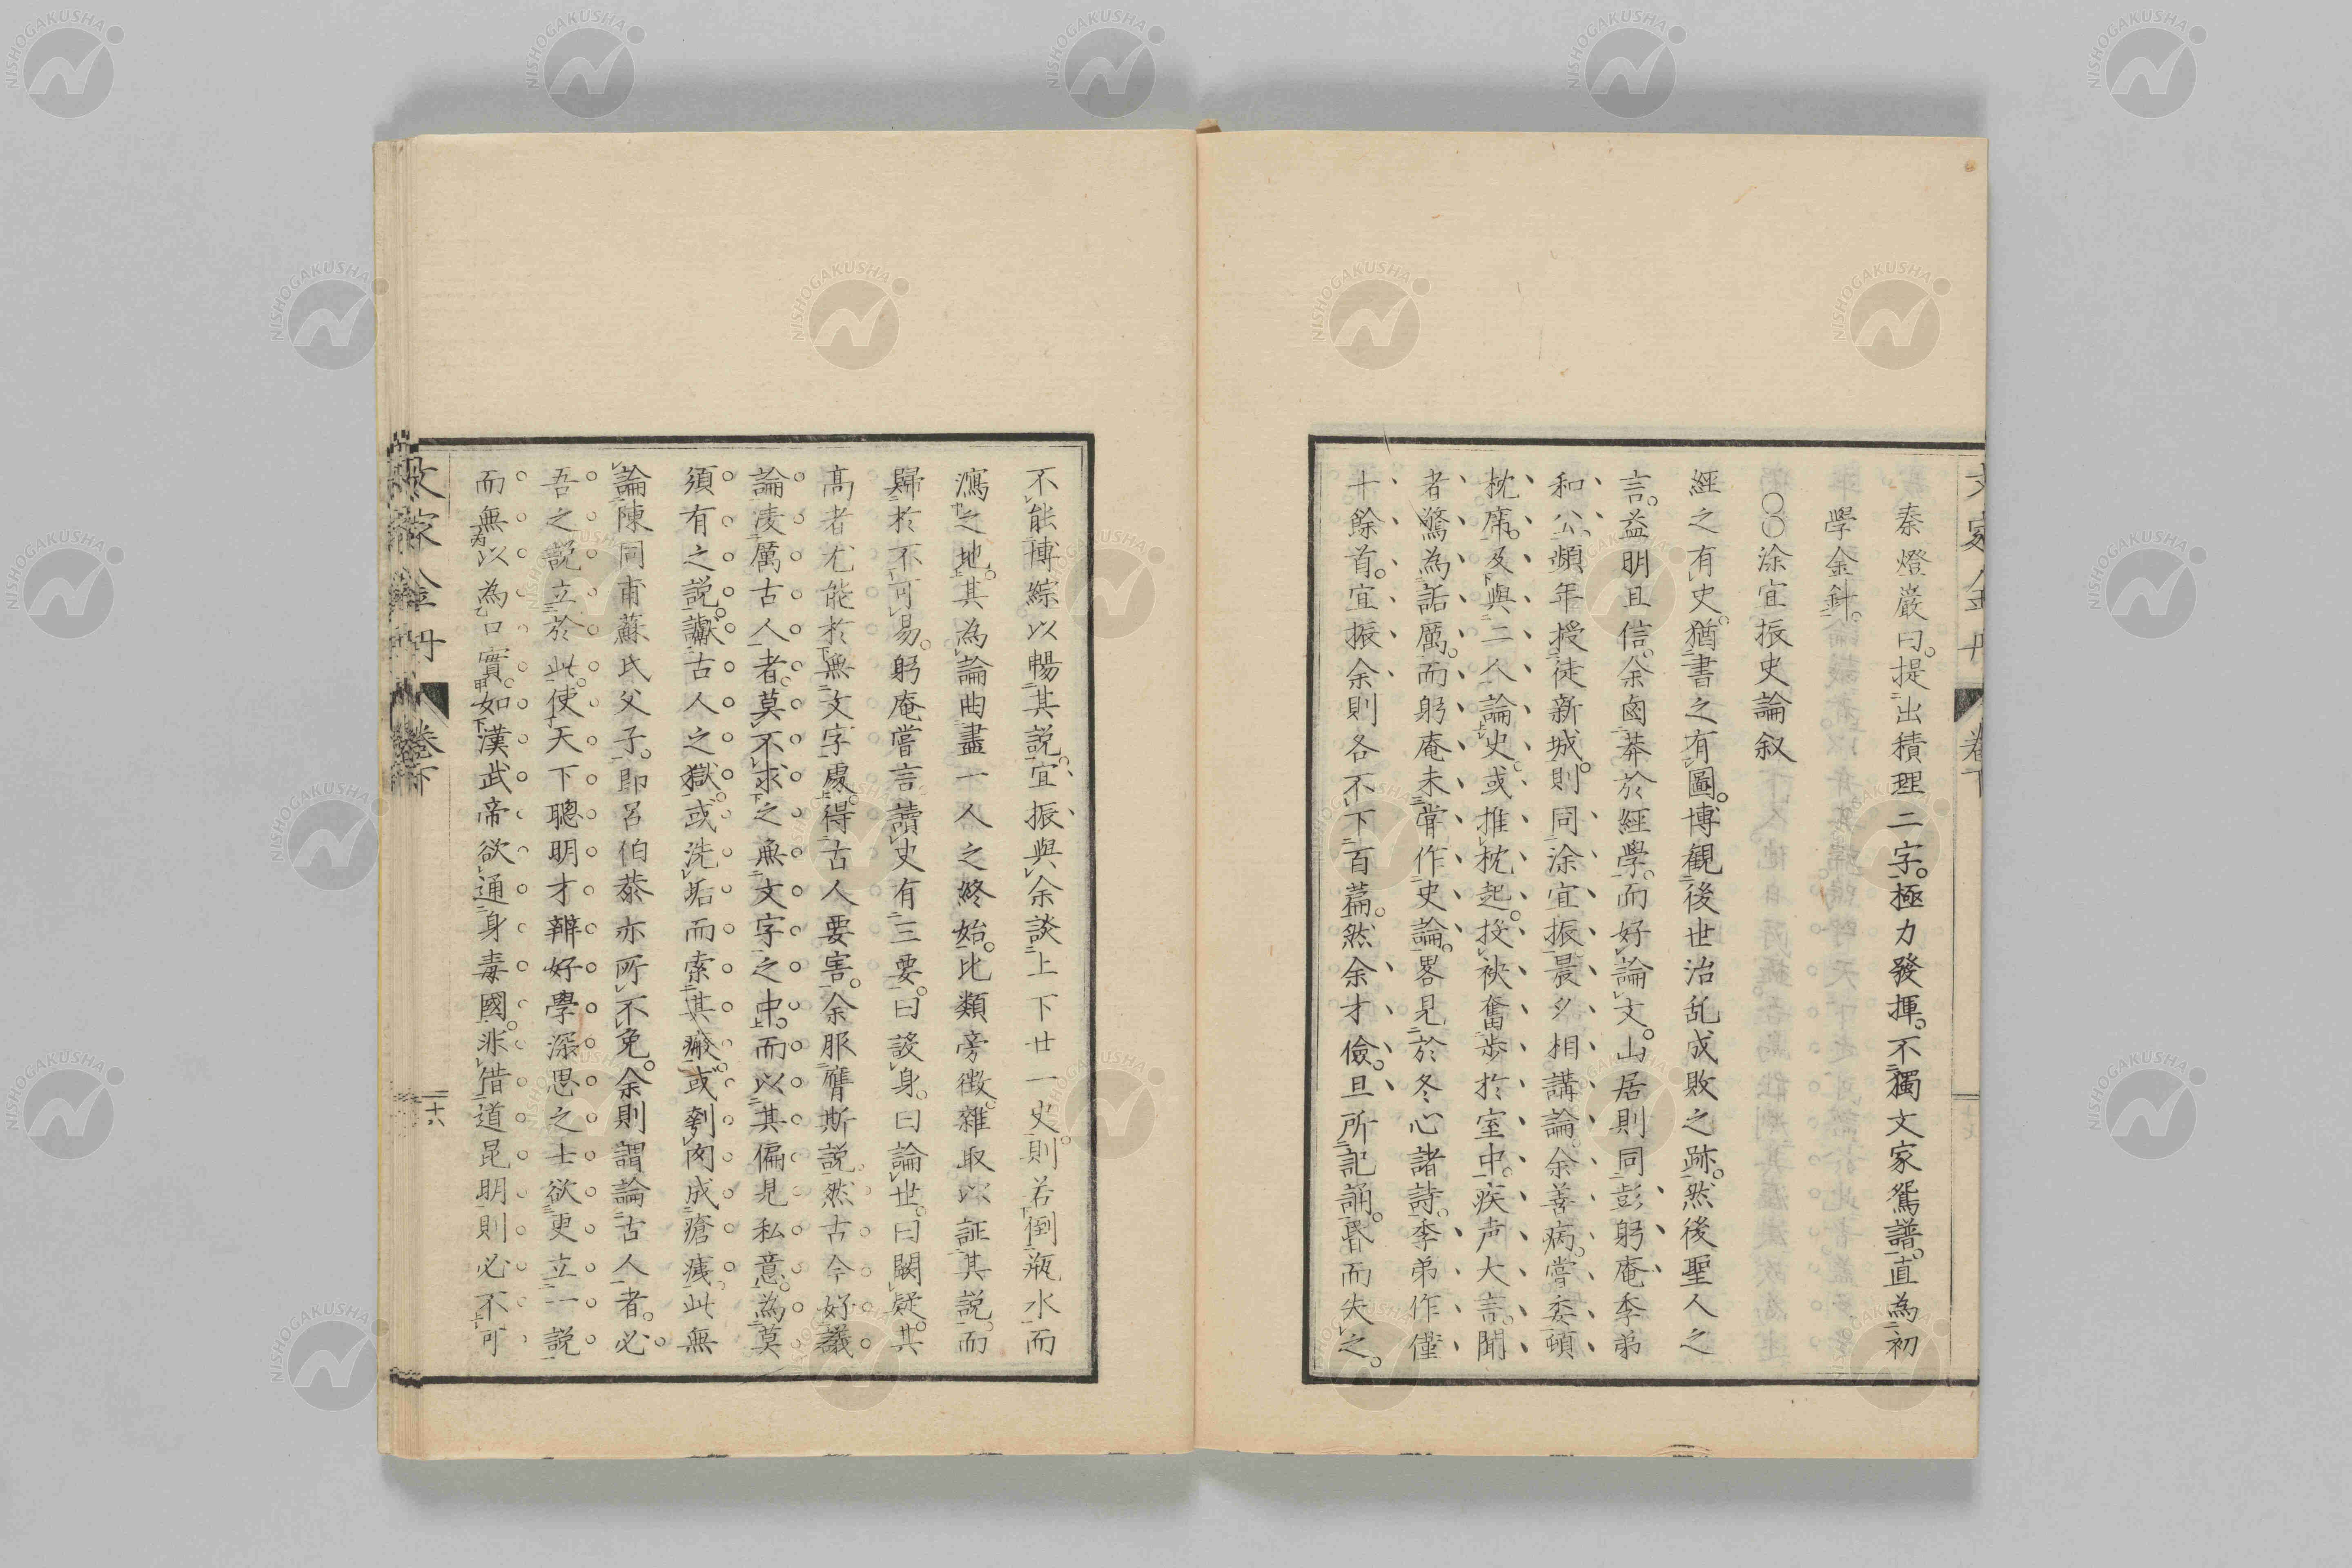 秦燈巖曰。提出積理二字。極力發揮。不獨文家鴛譜。直為初
學金針。
○○涂宜振史論叙
經之有史。猶書之有圖。博観後世治乱成敗之跡。然後聖人之
言。益明且信。余鹵莽於經學。而好論文。山居則同彭躬庵季弟
和公。頻年授徒新城。則同涂宜振晨夕相講論。余善病。嘗委頓
枕席。及與二人論史。或推枕起。投袂奮歩於室中。疾声大言。聞
者驚為詬厲。而躬庵未嘗作史論。畧見於冬心諸詩。季弟作僅
十餘首。宜振余則各不下百篇。然余才儉。且所記誦。昏而失之。
文家金丹
卷下
不能博綜以暢其説。宜振與余談上下廿一史。則若倒瓶水而
瀉之地。其為論曲盡一人之終始。比類旁徴。雜取以証其説。而
歸於不可易。躬庵嘗言讀史有三要。曰設身。曰論世。曰闕疑。其
高者尤能於無文字處得古人要害。余服膺斯説。然古今好議
論凌厲古人者。莫不求之無文字之中。而以其偏見私意。為莫
須有之説。讞古人之獄。或洗垢而索其瘢。或刳肉成瘡痍。此無
論陳同甫蘇氏父子。即呂伯恭亦所不免。余則謂論古人者。必
吾之説立於此。使天下聰明才辨好學深思之士欲更立一説
而無以為口實。如漢武帝欲通身毒國。非借道昆明則必不可
文家金丹
卷下
十六
NISHOGAKUSHA